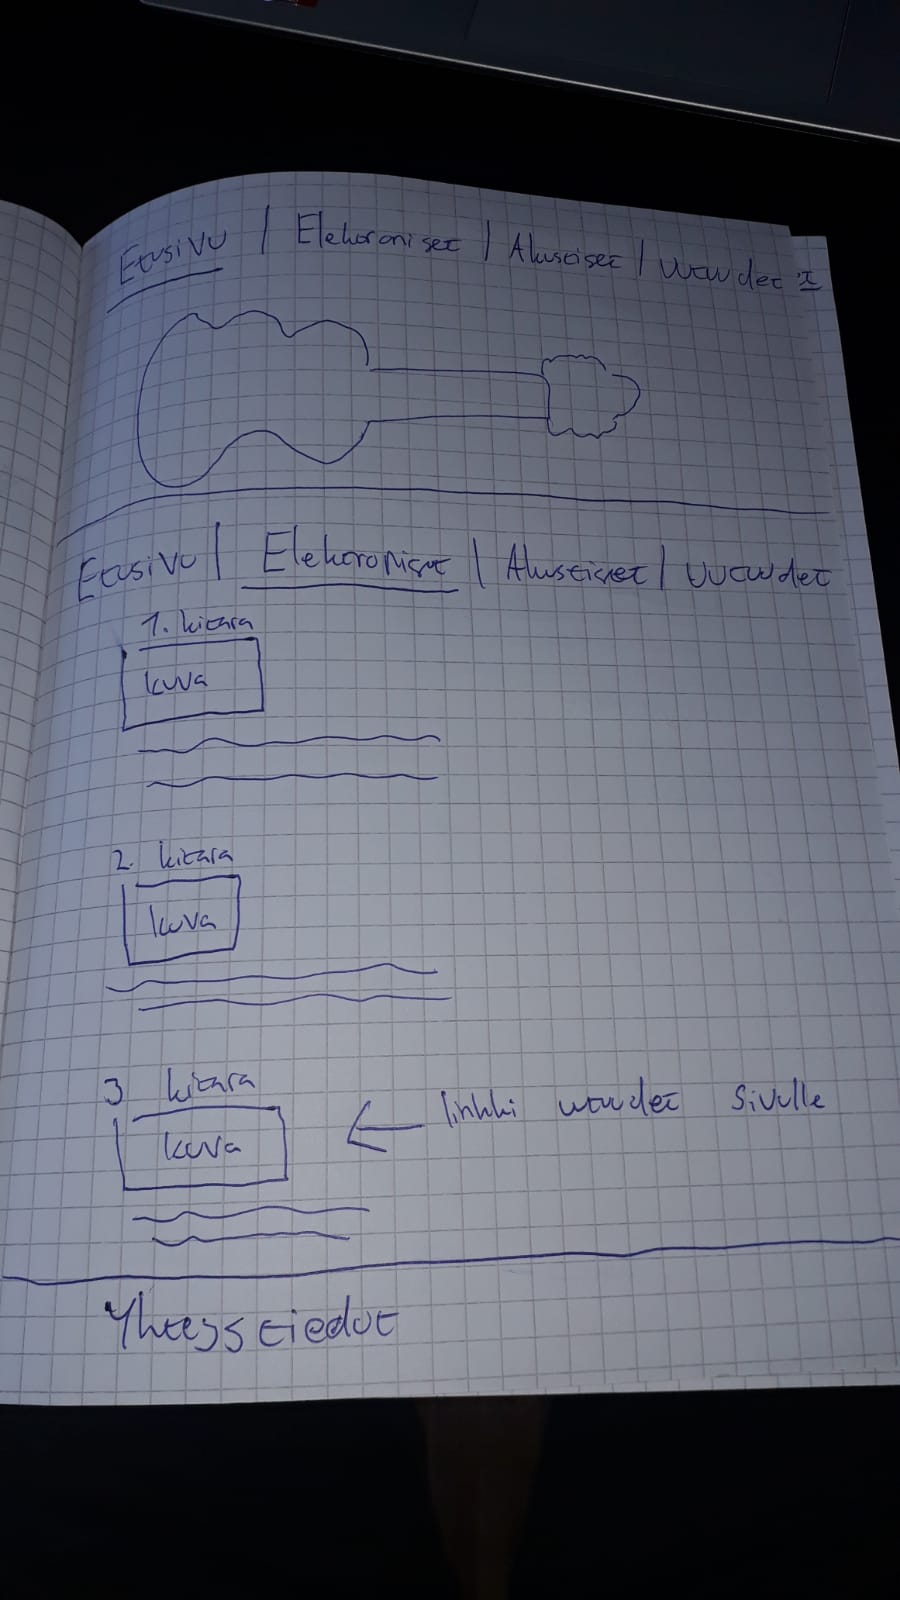 Etusivu | Elektroniset | Akustiset | Uutuudet
Etusivu | Elektroniset | Akustiset | Uutuudet
1. kitara
kuva
2. kitara
kuva
3 kitara
kuva
linkki uutuudet sivulle
Yhteystiedot